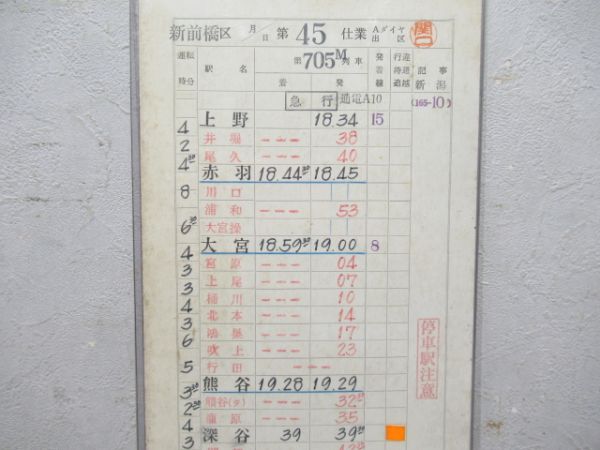 新前橋区 月日 第 45 仕業 Aダイヤ出区 関口
運転時分 駅名 第 705M 列車 着 発 発着線 行違待避追越 記事 新潟
急行 通電A10 (165-10)
上野 18.34 15
4
井堀 --- 38
2
尾久 --- 40
4³⁰
赤羽 18.44³⁰ 18.45
川口
8
浦和 --- 53
大宮操
6³⁰
大宮 18.59³⁰ 19.00 8
4
宮原 --- 04
3
上尾 --- 07
3
桶川 --- 10
4
北本 --- 14
3
鴻巣 --- 17
6
吹上 --- 23
行田 ---
5
熊谷 19.28 19.29
3³⁰
熊谷(タ) --- 32³⁰
2³⁰
籠原 --- 35
4
深谷 39 39³⁰
3
停車駅注意